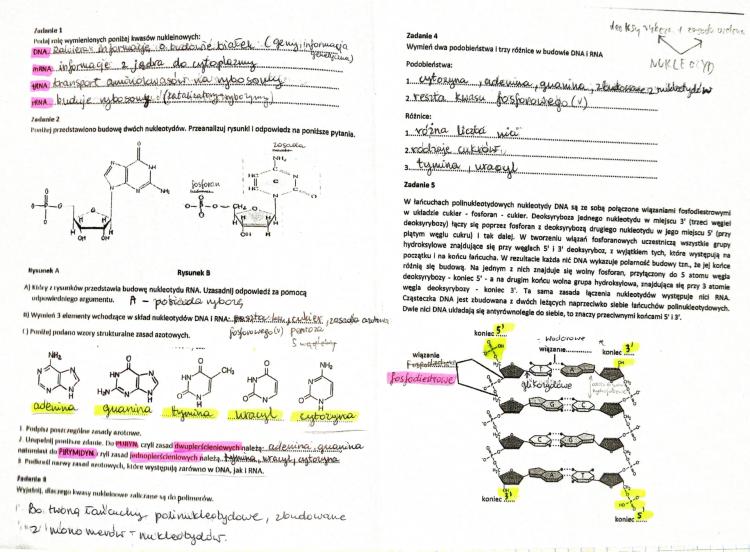 Zadanie 1
Podaj rolę wymienionych poniżej kwasów nukleinowych:
DNA zawiera informację o budowie białek (geny, informacja genetyczna)
mRNA informacje z jądra do cytoplazmy
tRNA transport aminokwasów na rybosomy
rRNA buduje rybosomy (katalizatory rybozymy)
Zadanie 2
Poniżej przedstawiono budowę dwóch nukleotydów. Przeanalizuj rysunki i odpowiedz na poniższe pytania.
zasada
fosforan
Rysunek A Rysunek B
A) Który z rysunków przedstawia budowę nukleotydu RNA. Uzasadnij odpowiedź za pomocą
odpowiedniego argumentu. A - posiada rybozę
B) Wymień 3 elementy wchodzące w skład nukleotydów DNA i RNA: reszta kw. cukier, zasada azotowa
fosforowego (V) pentoza
5 węglowy
C) Poniżej podano wzory strukturalne zasad azotowych.
adenina guanina tymina uracyl cytozyna
1. Podpisz poszczególne zasady azotowe.
2. Uzupełnij poniższe zdanie. Do PURYN, czyli zasad dwupierścieniowych należą: adenina, guanina
natomiast do PIRYMIDYN czyli zasad jednopierścieniowych należą tymina, uracyl, cytozyna
3. Podkreśl nazwy zasad azotowych, które występują zarówno w DNA, jak i RNA.
Zadanie 3
Wyjaśnij, dlaczego kwasy nukleinowe zaliczane są do polimerów.
Bo tworzą łańcuchy polinukleotydowe, zbudowane
z monomerów - nukleotydów.
Zadanie 4
Wymień dwa podobieństwa i trzy różnice w budowie DNA i RNA
NUKLEOTYD
Podobieństwa:
1. cytozyna, adenina, guanina, zbudowane z nukleotydów
2. reszta kwasu fosforowego (V)
Różnice:
1. różna liczba nici
2. rodzaje cukrów
3. tymina, uracyl
Zadanie 5
W łańcuchach polinukleotydowych nukleotydy DNA są ze sobą połączone wiązaniami fosfodiestrowymi
w układzie cukier - fosforan - cukier. Deoksyryboza jednego nukleotydu w miejscu 3' (trzeci węgiel
deoksyrybozy) łączy się poprzez fosforan z deoksyrybozą drugiego nukleotydu w jego miejscu 5' (przy
piątym węglu cukru) i tak dalej. W tworzeniu wiązań fosforanowych uczestniczą wszystkie grupy
hydroksylowe znajdujące się przy węglach 5' i 3' deoksyryboz, z wyjątkiem tych, które występują na
początku i na końcu łańcucha. W rezultacie każda nić DNA wykazuje polarność budowy tzn., że jej końce
różnią się budową. Na jednym z nich znajduje się wolny fosforan, przyłączony do 5 atomu węgla
deoksyrybozy - koniec 5' - a na drugim końcu wolna grupa hydroksylowa, znajdująca się przy 3 atomie
węgla deoksyrybozy - koniec 3'. Ta sama zasada łączenia nukleotydów występuje nici RNA.
Cząsteczka DNA jest zbudowana z dwóch leżących naprzeciwko siebie łańcuchów polinukleotydowych.
Dwie nici DNA układają się antyrównolegle do siebie, to znaczy przeciwnymi końcami 5' i 3'.
koniec 5'
wodorowe
wiązanie
koniec 3'
wiązanie
fosfodiestrowe
glikozydowe
koniec 3'
koniec 5'